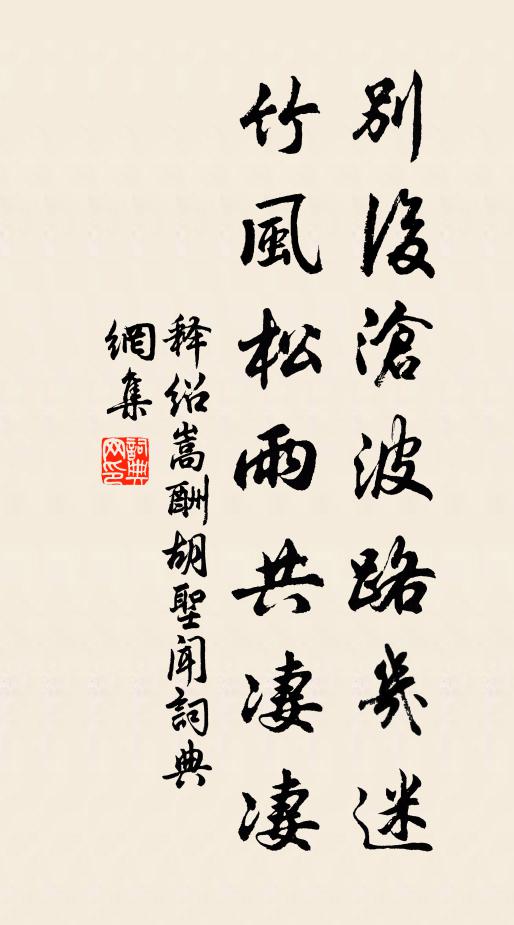 別後滄波路幾迷
竹風松雨共凄凄
释紹嵩酬胡聖聞詞典
網集
詞典網印